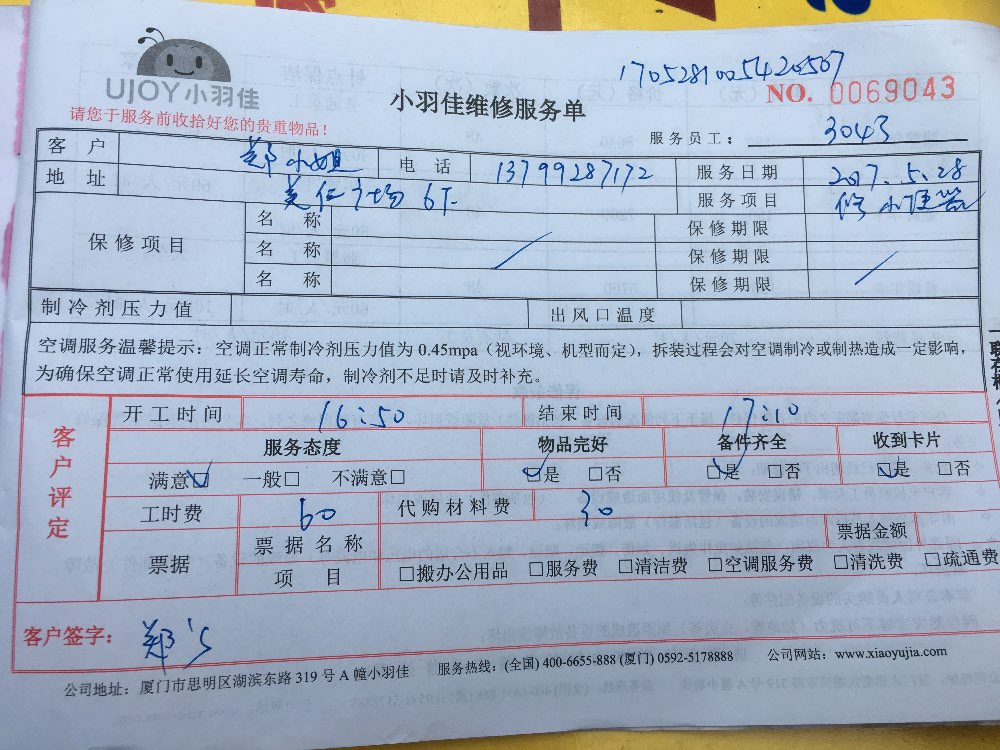 UJOY小羽佳
请您于服务前收拾好您的贵重物品！
小羽佳维修服务单
1705281005420507
NO. 0069043
服务员工： 3043
客 户 郑小姐 电 话 13799287172 服务日期 2017.5.28
地 址 美仁广场 服务项目 修
保修项目 名 称 保修期限
名 称 保修期限
名 称 保修期限
制冷剂压力值 出风口温度
空调服务温馨提示：空调正常制冷剂压力值为 0.45mpa（视环境、机型而定），拆装过程会对空调制冷或制热造成一定影响，
为确保空调正常使用延长空调寿命，制冷剂不足时请及时补充。
客户评定
开工时间 16:50 结束时间 17:10
服务态度 物品完好 备件齐全 收到卡片
满意☑ 一般□ 不满意□ ☑是 □否 ☑是 □否 ☑是 □否
工时费 60 代购材料费 30
票据 票据名称 票据金额
项 目 □搬办公用品 □服务费 □清洁费 □空调服务费 □清洗费 □疏通费
客户签字： 郑's
公司地址：厦门市思明区湖滨东路 319 号 A 幢小羽佳 服务热线：(全国) 400-6655-888 (厦门) 0592-5178888 公司网站：www.xiaoyujia.com